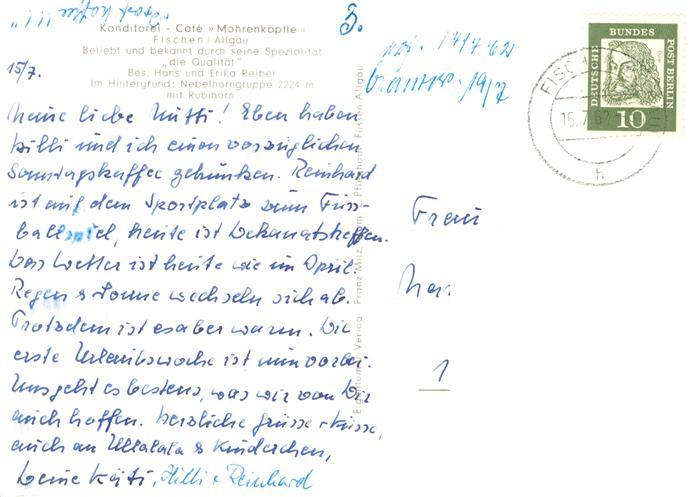 "Prost Kaffee!!!"
3.
Konditorei - Café »Mohrenköpfle«
Fischen/Allgäu
Beliebt und bekannt durch seine Spezialität
„die Qualität"
Bes. Hans und Erika Reiber
Im Hintergrund: Nebelhorngruppe 2224 m
mit Rubihorn
15/7.
17/7 62
19/7
Meine liebe Mutti! Eben haben
Hilli und ich einen vorzüglichen
Sonntagskaffee getrunken. Reinhard
ist auf dem Sportplatz zum Fuss-
ballspiel, heute ist Dekanatstreffen.
Das Wetter ist heute wie im April.
Regen & Sonne wechseln sich ab.
Trotzdem ist es aber warm. Die
erste Urlaubswoche ist nun vorbei.
Uns geht es bestens, was wir von Dir
auch hoffen. Herzliche Grüsse + Küsse,
auch an Ullalala & Kinderchen,
Deine Käti, Hilli + Reinhard
Eigentum u. Verlag Franz Milz, Füssen Allgäu
DEUTSCHE BUNDES POST BERLIN
10
FISCH
16.7.62
h
Frau
1